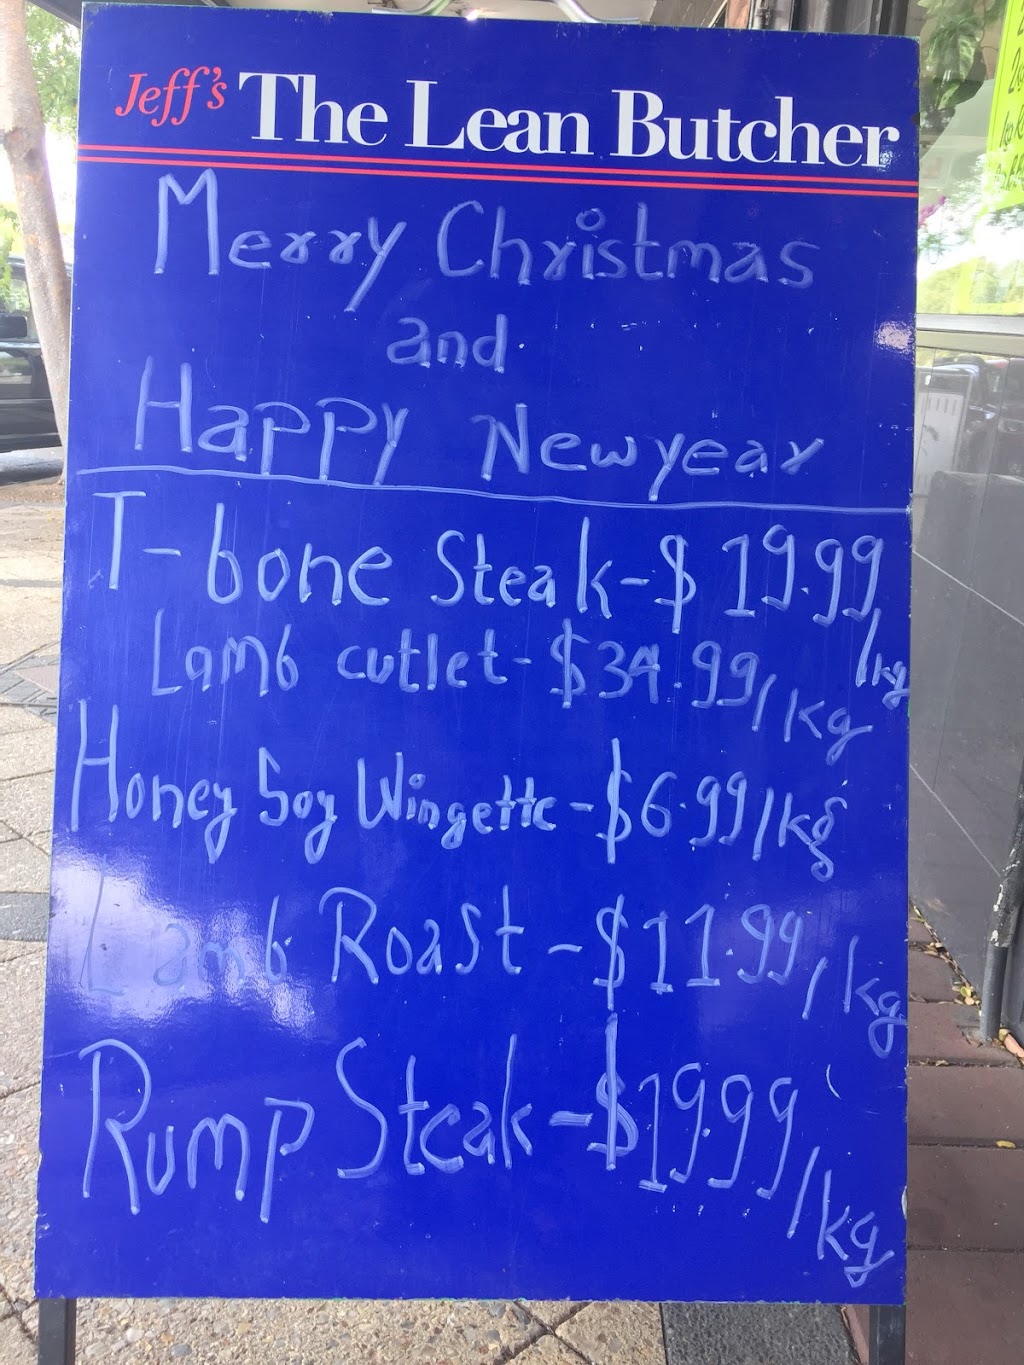 Jeff's The Lean Butcher
Merry Christmas
and
Happy Newyear
T-bone Steak-$19.99/kg
Lamb cutlet-$34.99/kg
Honey Soy Wingette-$6.99/kg
Lamb Roast-$11.99/kg
Rump Steak-$19.99/kg